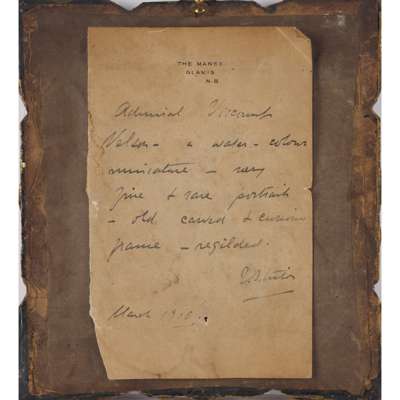 THE MANSE
GLAMIS
N.B.
Admiral Viscount
Nelson - a water-colour
miniature - very
fine & rare portrait
- old carved & curious
frame - regilded.
March